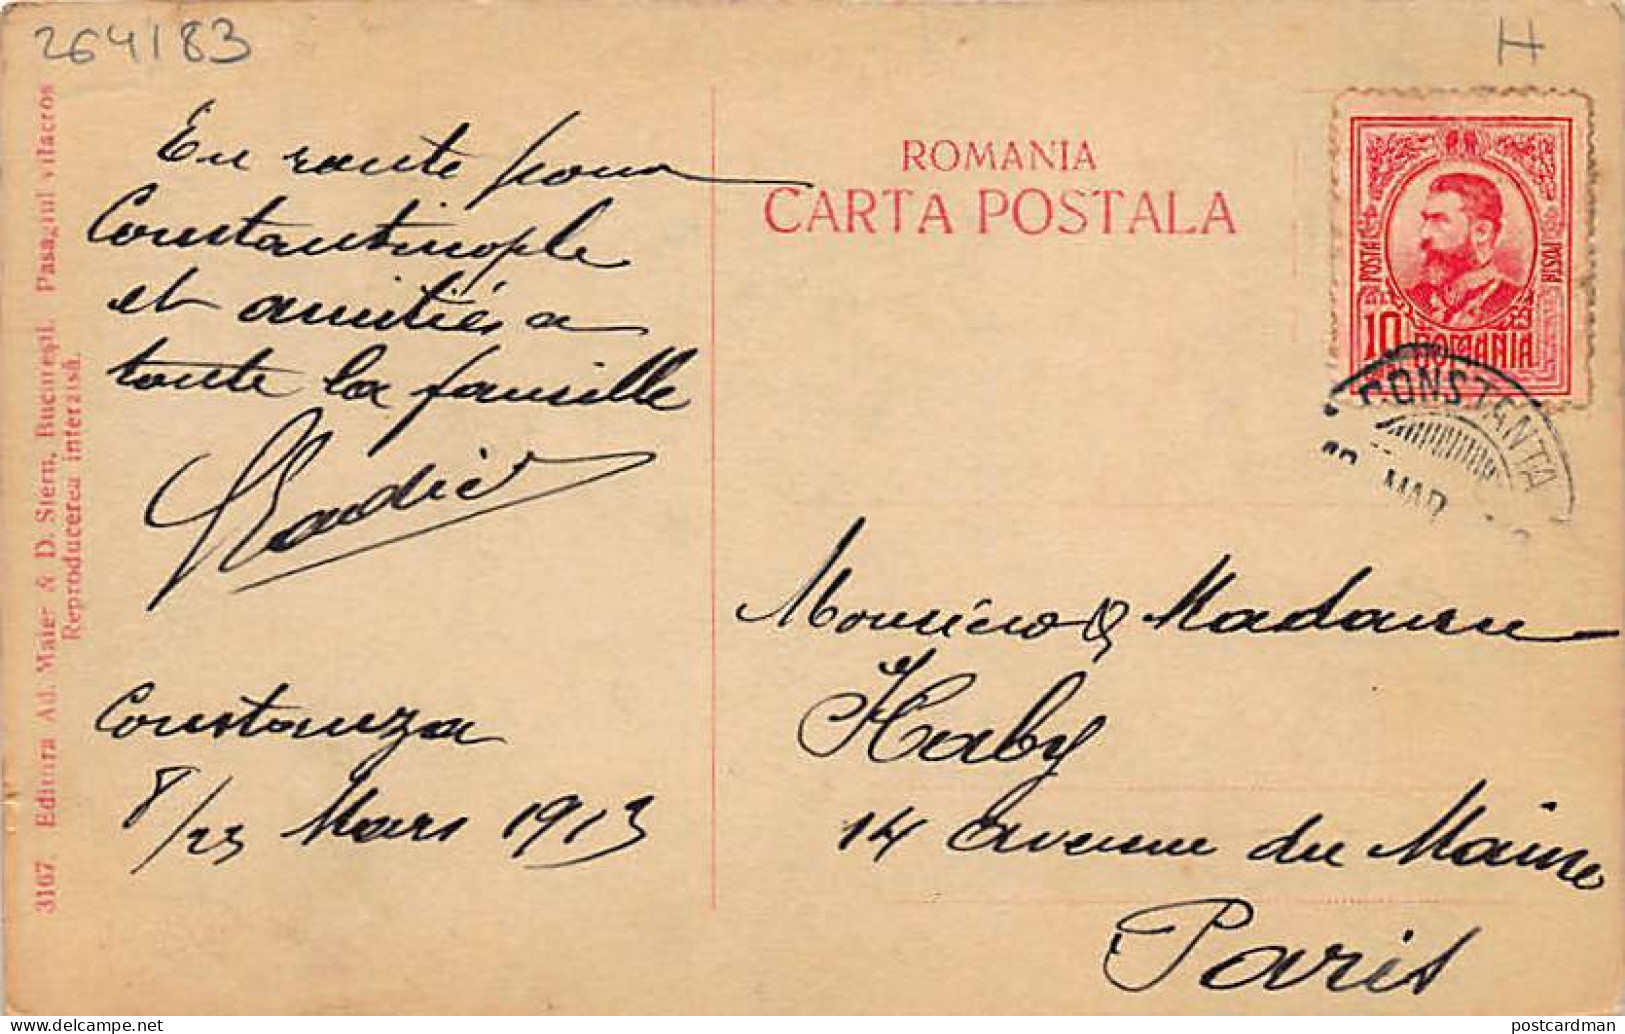 264183
H
En route pour
Constantinople
et amitiés a
toute la famille
Constanza
8/23 Mars 1913
3167. Editura Ad. Maier & D. Stern, Bucureşti. Pasagiul Vilacros
Reproducerea interzisă.
ROMANIA
CARTA POSTALA
POSTA
POSTA
10 ROMANIA
CONSTANTA
MAR
Monsieur & Madame
Haby
14 Avenue du Maine
Paris
postcardman